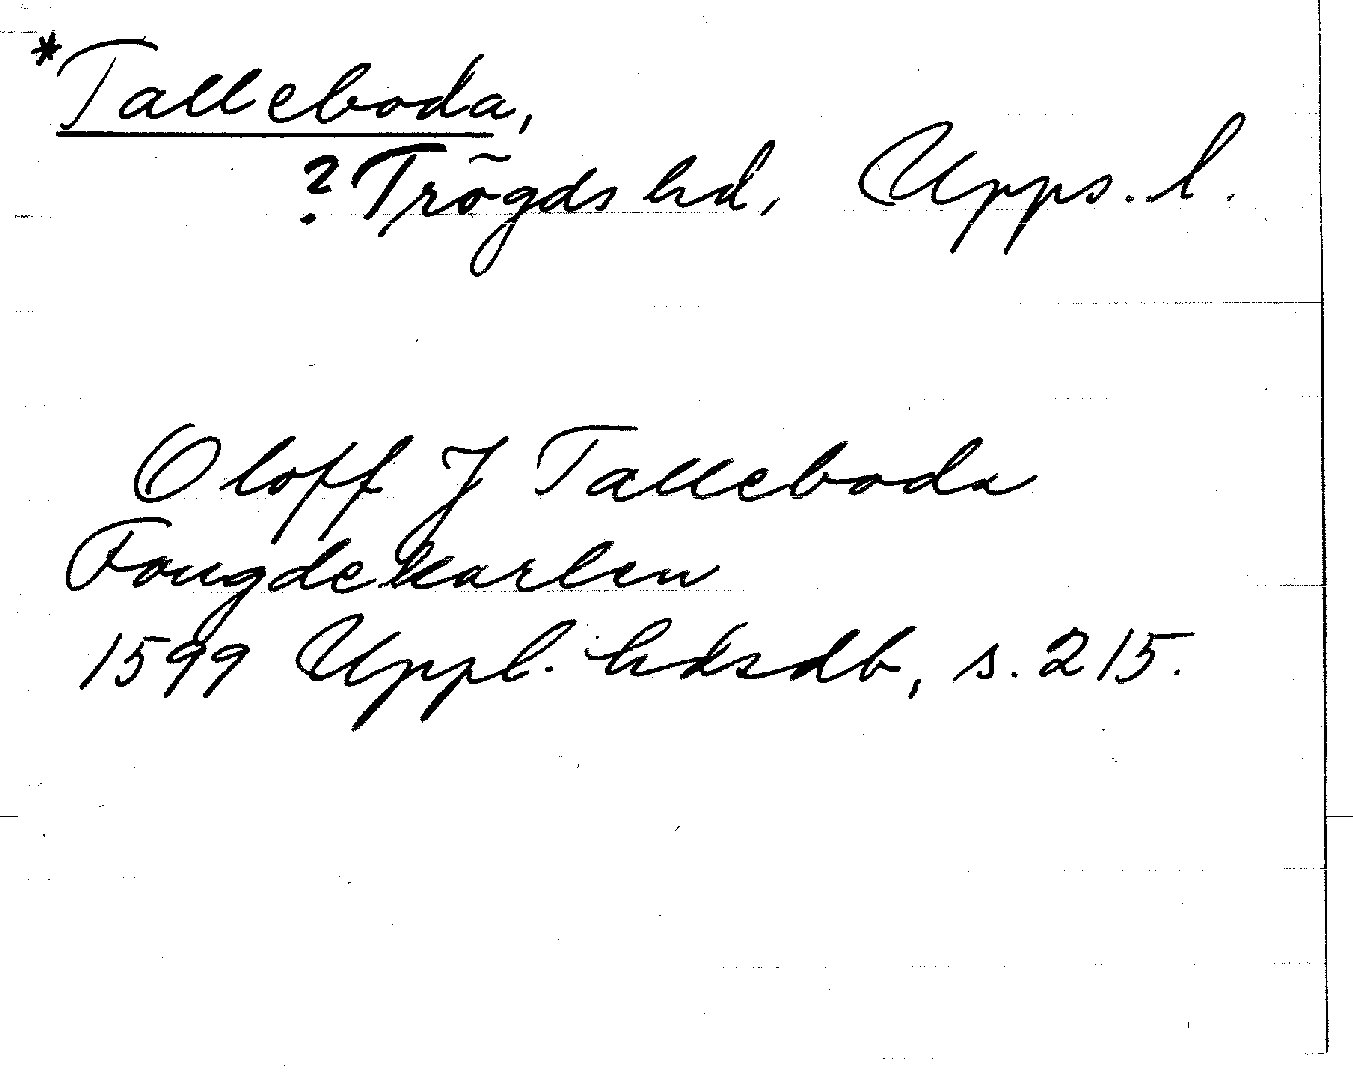 *Talleboda,
? Trögds hd, Upps. l.
Oloff J Talleboda
Fougdekarlen
1599 Uppl. hdsdb, s. 215.